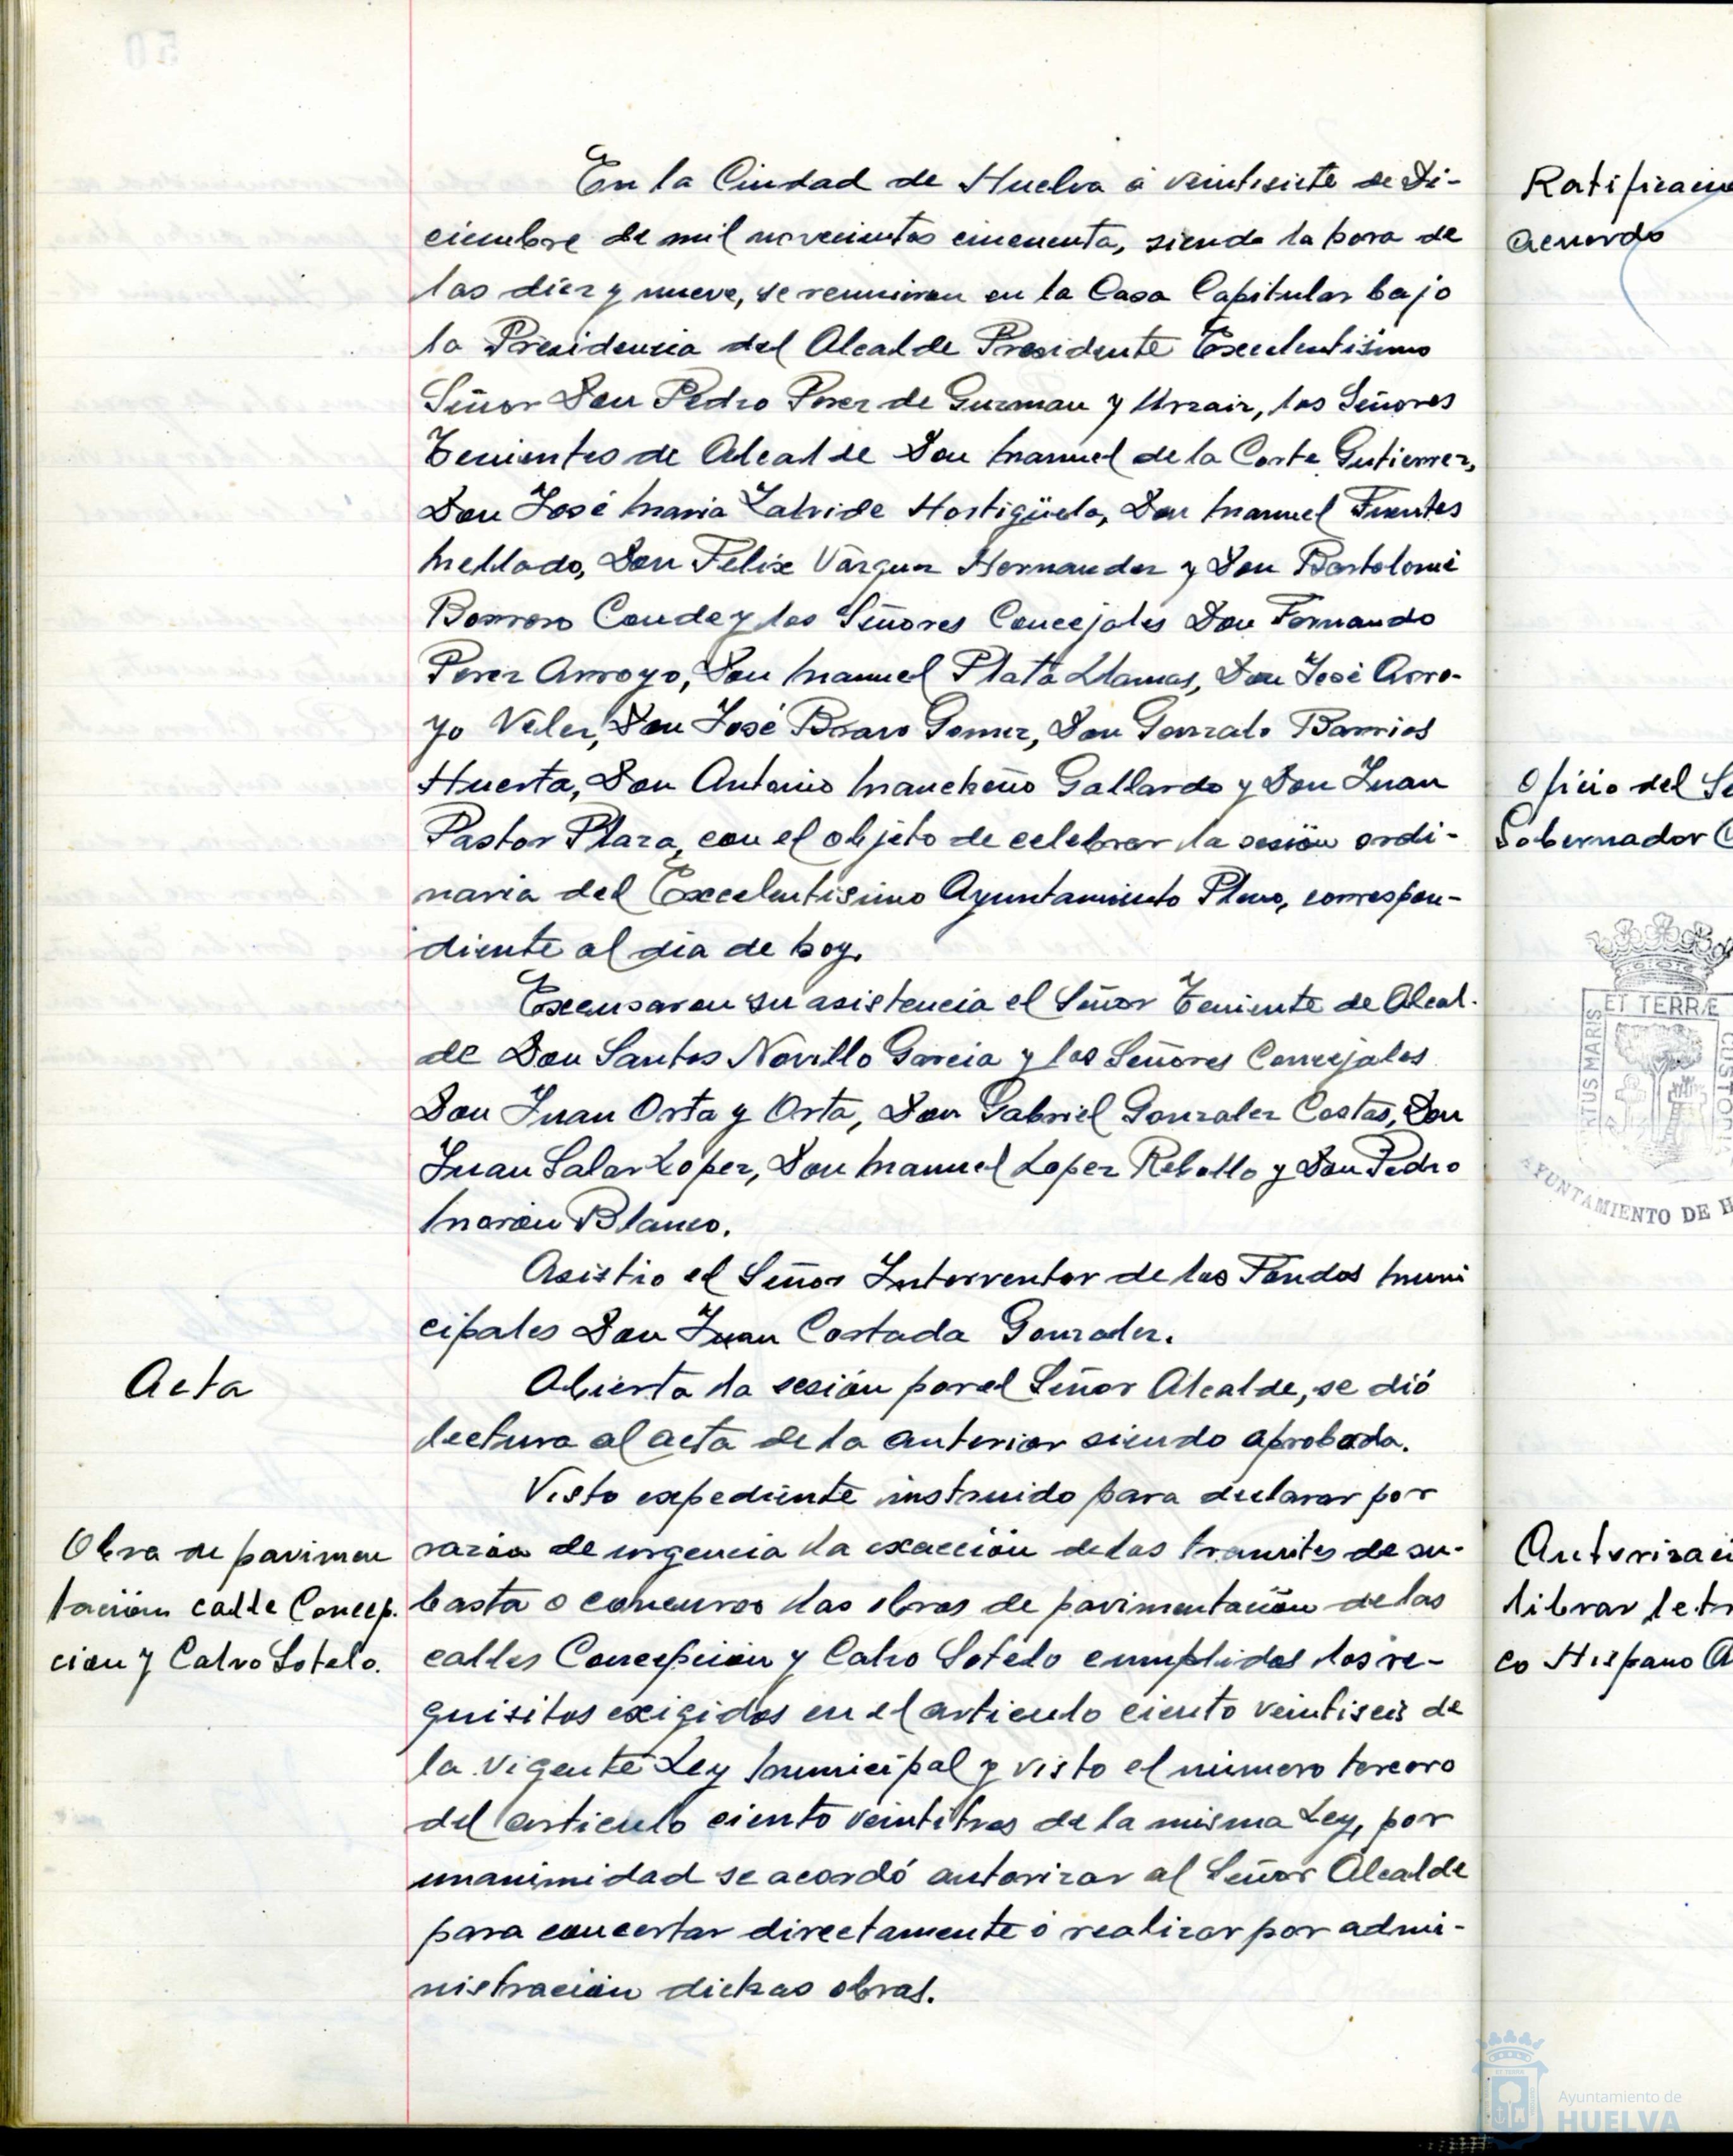 En la Ciudad de Huelva á veintisiete de Di-
ciembre de mil novecientos cincuenta, siendo la hora de
las diez y nueve, se reunieron en la Casa Capitular bajo
la Presidencia del Alcalde Presidente Excelentísimo
Señor Don Pedro Perez de Guzman y Urzaiz, los Señores
Tenientes de Alcalde Don Manuel de la Corte Gutierrez,
Don José Maria Zalvide Hortigüela, Don Manuel Fuentes
Mellado, Don Felix Vázquez Hernandez y Don Bartolomé
Borrero Conde y los Señores Concejales Don Fernando
Perez Arroyo, Don Manuel Plata Llamas, Don José Arro-
yo Velez, Don José Bravo Gomez, Don Gonzalo Barrios
Huerta, Don Antonio Mancheño Gallardo y Don Juan
Pastor Plaza, con el objeto de celebrar la sesión ordi-
naria del Excelentisimo Ayuntamiento Pleno, correspon-
diente al día de hoy.
Excusaron su asistencia el Señor Teniente de Alcal-
de Don Santos Novillo Garcia y los Señores Concejales
Don Juan Orta y Orta, Don Gabriel Gonzalez Costas, Don
Juan Salas Lopez, Don Manuel Lopez Rebollo y Don Pedro
Morón Blanco.
Asistio el Señor Interventor de los Fondos Muni
cipales Don Juan Costada Gonzalez.
Acta
Abierta la sesión por el Señor Alcalde, se dió
lectura al acta de la anterior siendo aprobada.
Obra de pavimen
tación calle Concep.
cion y Calvo Sotelo.
Visto expediente instruido para declarar por
razón de urgencia la exacción de los tramites de su-
basta o concurso las obras de pavimentación de las
calles Concepción y Calvo Sotelo cumplidos los re-
quisitos exigidos en el articulo ciento veintiseis de
la vigente Ley Municipal y visto el número tercero
del articulo ciento veintitres de la misma Ley, por
unanimidad se acordó autorizar al Señor Alcalde
para concertar directamente ó realizar por admi-
nistración dichas obras.
Ratificacion
acuerdo
Oficio del Se
Gobernador C
ET TERRÆ
MARIS
AYUNTAMIENTO DE H
Autorizaci
librar letr
co Hispano A
Ayuntamiento de
HUELVA